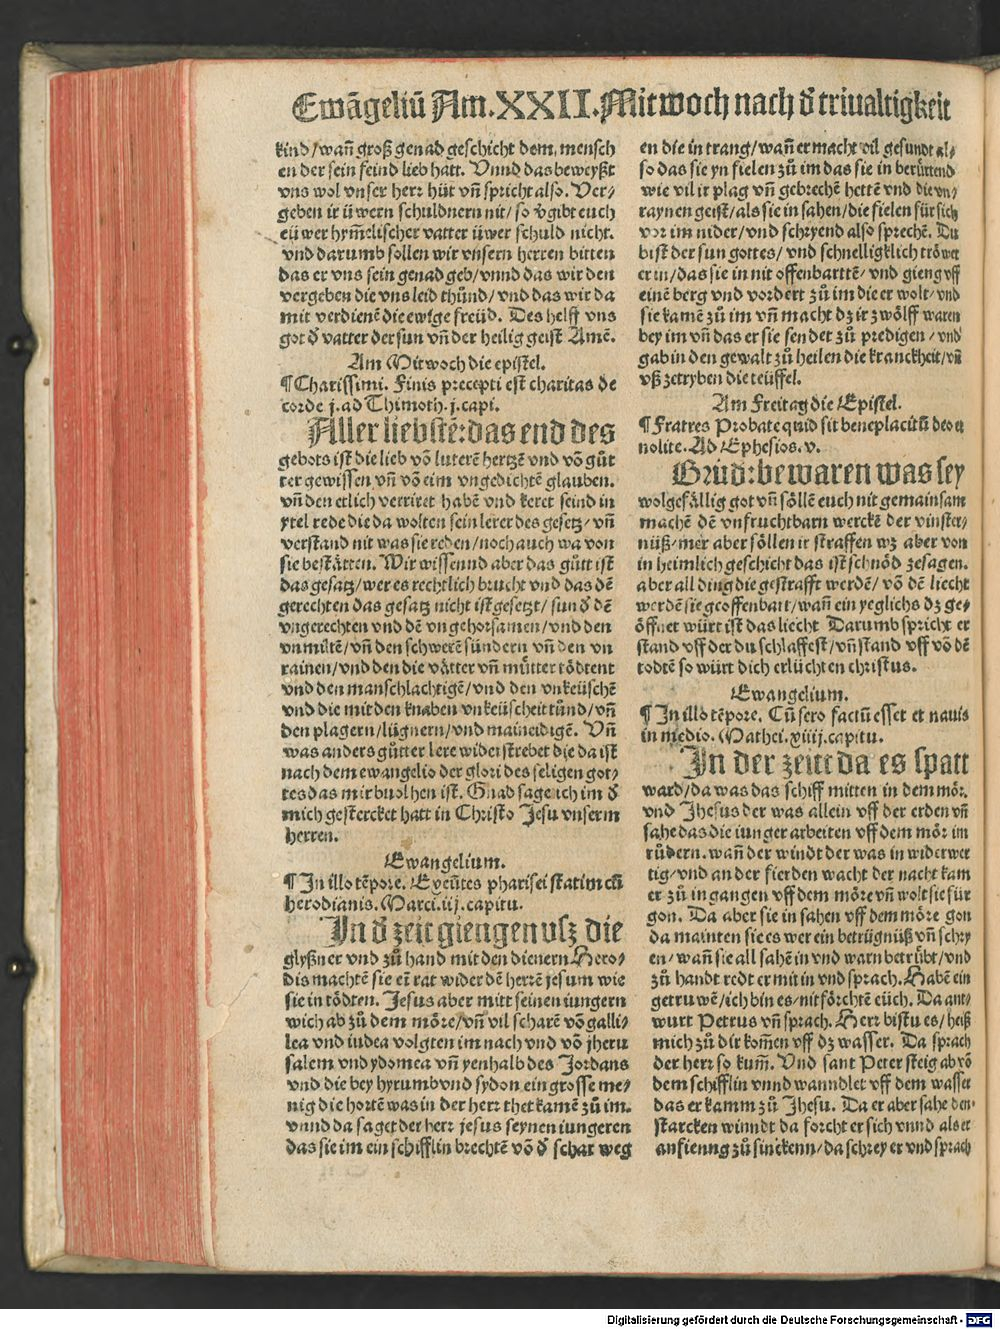 Ewāgeliū Am.XXII.Mitwoch nach d̕ triualtigkeit
kind/wañ groß genad geschicht dem, mensch
en der sein feind lieb hatt. Vnnd das beweyßt
vns wol vnser herr hüt vñ spricht also. Ver⸗
geben ir üwern schuldnern nit/so v̕gibt euch
eüwer hym̄elischer vatter üwer schuld nicht.
vnd darumb sollen wir vnsern herren bitten
das er vns sein genad geb/vnnd das wir den
vergeben die vns leid thünd/vnd das wir da
mit verdienē die ewige freüd. Des helff vns
got d̕ vatter der sun vñ der heilig geist Amē.
Am Mitwoch die epistel.
¶Charissimi. Finis precepti est charitas de
corde j. ad Thimoth. j. capi.
Aller liebstē: das end des
gebots ist die lieb vō luterē hertzē vnd vō gůt
ter gewissen vñ vō eim vngedichtē glauben.
vñ den etlich verriret habē vnd keret seind in
ytel rede die da wolten sein lerer des gesetz/vñ
verstand nit was sie reden/noch auch wa von
sie bestätten. Wir wissennd aber das gůtt ist
das gesatz/wer es rechtlich brucht vnd das dē
gerechten das gesatz nicht ist gesetzt/sund̕ dē
vngerechten vnd dē vngehorsamen/vnd den
vnmiltē/vñ den schwerē sündern vñ den vn
rainen/vnd den die vätter vñ můtter tödtent
vnd den manschlachtigē/vnd den vnkeüschē
vnd die mit den knaben vnkeüscheit tůnd/vñ
den plagern/lügnern/vnd maineidigē. Vñ
was anders gůtter lere widerstrebet die da ist
nach dem ewangelio der glori des seligen got⸗
tes das mir buolhen ist. Gnad sage ich im d̕
mich gestercket hatt in Christo Jesu vnserm
herren.
Ewangelium.
¶In illo tēpore. Exeūtes pharisei statim cū
herodianis. Marci. iij. capitu.
In d̕ zeit giengen vsz die
glyßner vnd zů hand mit den dienern Hero⸗
dis machtē sie eī rat wider dē herrē jesum wie
sie in tödten. Jesus aber mitt seinen iungern
wich ab zů dem möre/vñ vil scharē vō galli⸗
lea vnd iudea volgten im nach vnd vō jheru
salem vnd ydomea vñ yenhalb des Jordans
vnd die bey hyrumb vnd sydon ein grosse me⸗
nig die hortē was in der herr thet kamē zů im.
vnnd da saget der herr jesus seynen iungeren
das sie im ein schifflin brechtē vō d̕ schar weg
en die in trang/wañ er macht vil gesundt al⸗
so das sie yn fielen zů im das sie in berürtend
wie vil ir plag vñ gebrechē hettē vnd die vn⸗
raynen geist/als sie in sahen/die fielen für sich
vor im nider/vnd schryend also sprechē. Du
bist der sun gottes/vnd schnelligklich tröwet
er in/das sie in nit offenbarttē/vnd gieng vff
einē berg vnd vordert zů im die er wolt/vnd
sie kamē zů im vñ macht dz ir zwölff waren
bey im vñ das er sie sendet zů predigen/vnd
gab in den gewalt zů heilen die kranckheit/vñ
vß zetryben die teüffel.
Am Freitag die Epistel.
¶Fratres Probate quid sit beneplacitū deo et
nolite. Ad Ephesios. v.
Brüd̕: bewaren was sey
wolgefällig got vñ söllē euch nit gemainsam
machē dē vnfruchtbarn werckē der vinster⸗
nüß/mer aber söllen ir straffen wz aber von
in heimlich geschicht das ist schnöd zesagen.
aber all ding die gestrafft werdē/vō dē liecht
werdē sie geoffenbart/wañ ein yeglichs dz ge⸗
öffnet würt ist das liecht Darumb spricht er
stand vff der du schlaffest/vñ stand vff vō dē
todtē so würt dich erlüchten christus.
Ewangelium.
¶In illo tēpore. Cū sero factū esset et nauis
in medio. Mathei. xiiij. capitu.
In der zeitt da es spatt
ward/da was das schiff mitten in dem mör.
vnd Jhesus der was allein vff der erden vñ
sahe das die iunger arbeiten vff dem mör im
růdern. wañ der windt der was in widerwer
tig/vnd an der fierden wacht der nacht kam
er zů in gangen vff dem möre vñ wolt sie für
gon. Da aber sie in sahen vff dem möre gon
da mainten sie es wer ein betrügnüß vñ schry
en/wañ sie all sahē in vnd warn betrübt/vnd
zů handt redt er mit in vnd sprach. Habē ein
getruwē/ich bin es/nit förchtē eüch. Da ant⸗
wurt Petrus vñ sprach. Herr bistu es/heiß
mich zů dir kom̄en vff dz wasser. Da sprach
der herr so kum̄. Vnd sant Peter steig ab vō
dem schifflin vnnd wanndlet vff dem wasser
das er kamm zů Jhesu. Da er aber sahe den
starcken winndt da forcht er sich vnnd als er
anfienng zů sinckenn/da schrey er vnd sprach
Digitalisierung gefördert durch die Deutsche Forschungsgemeinschaft - DFG